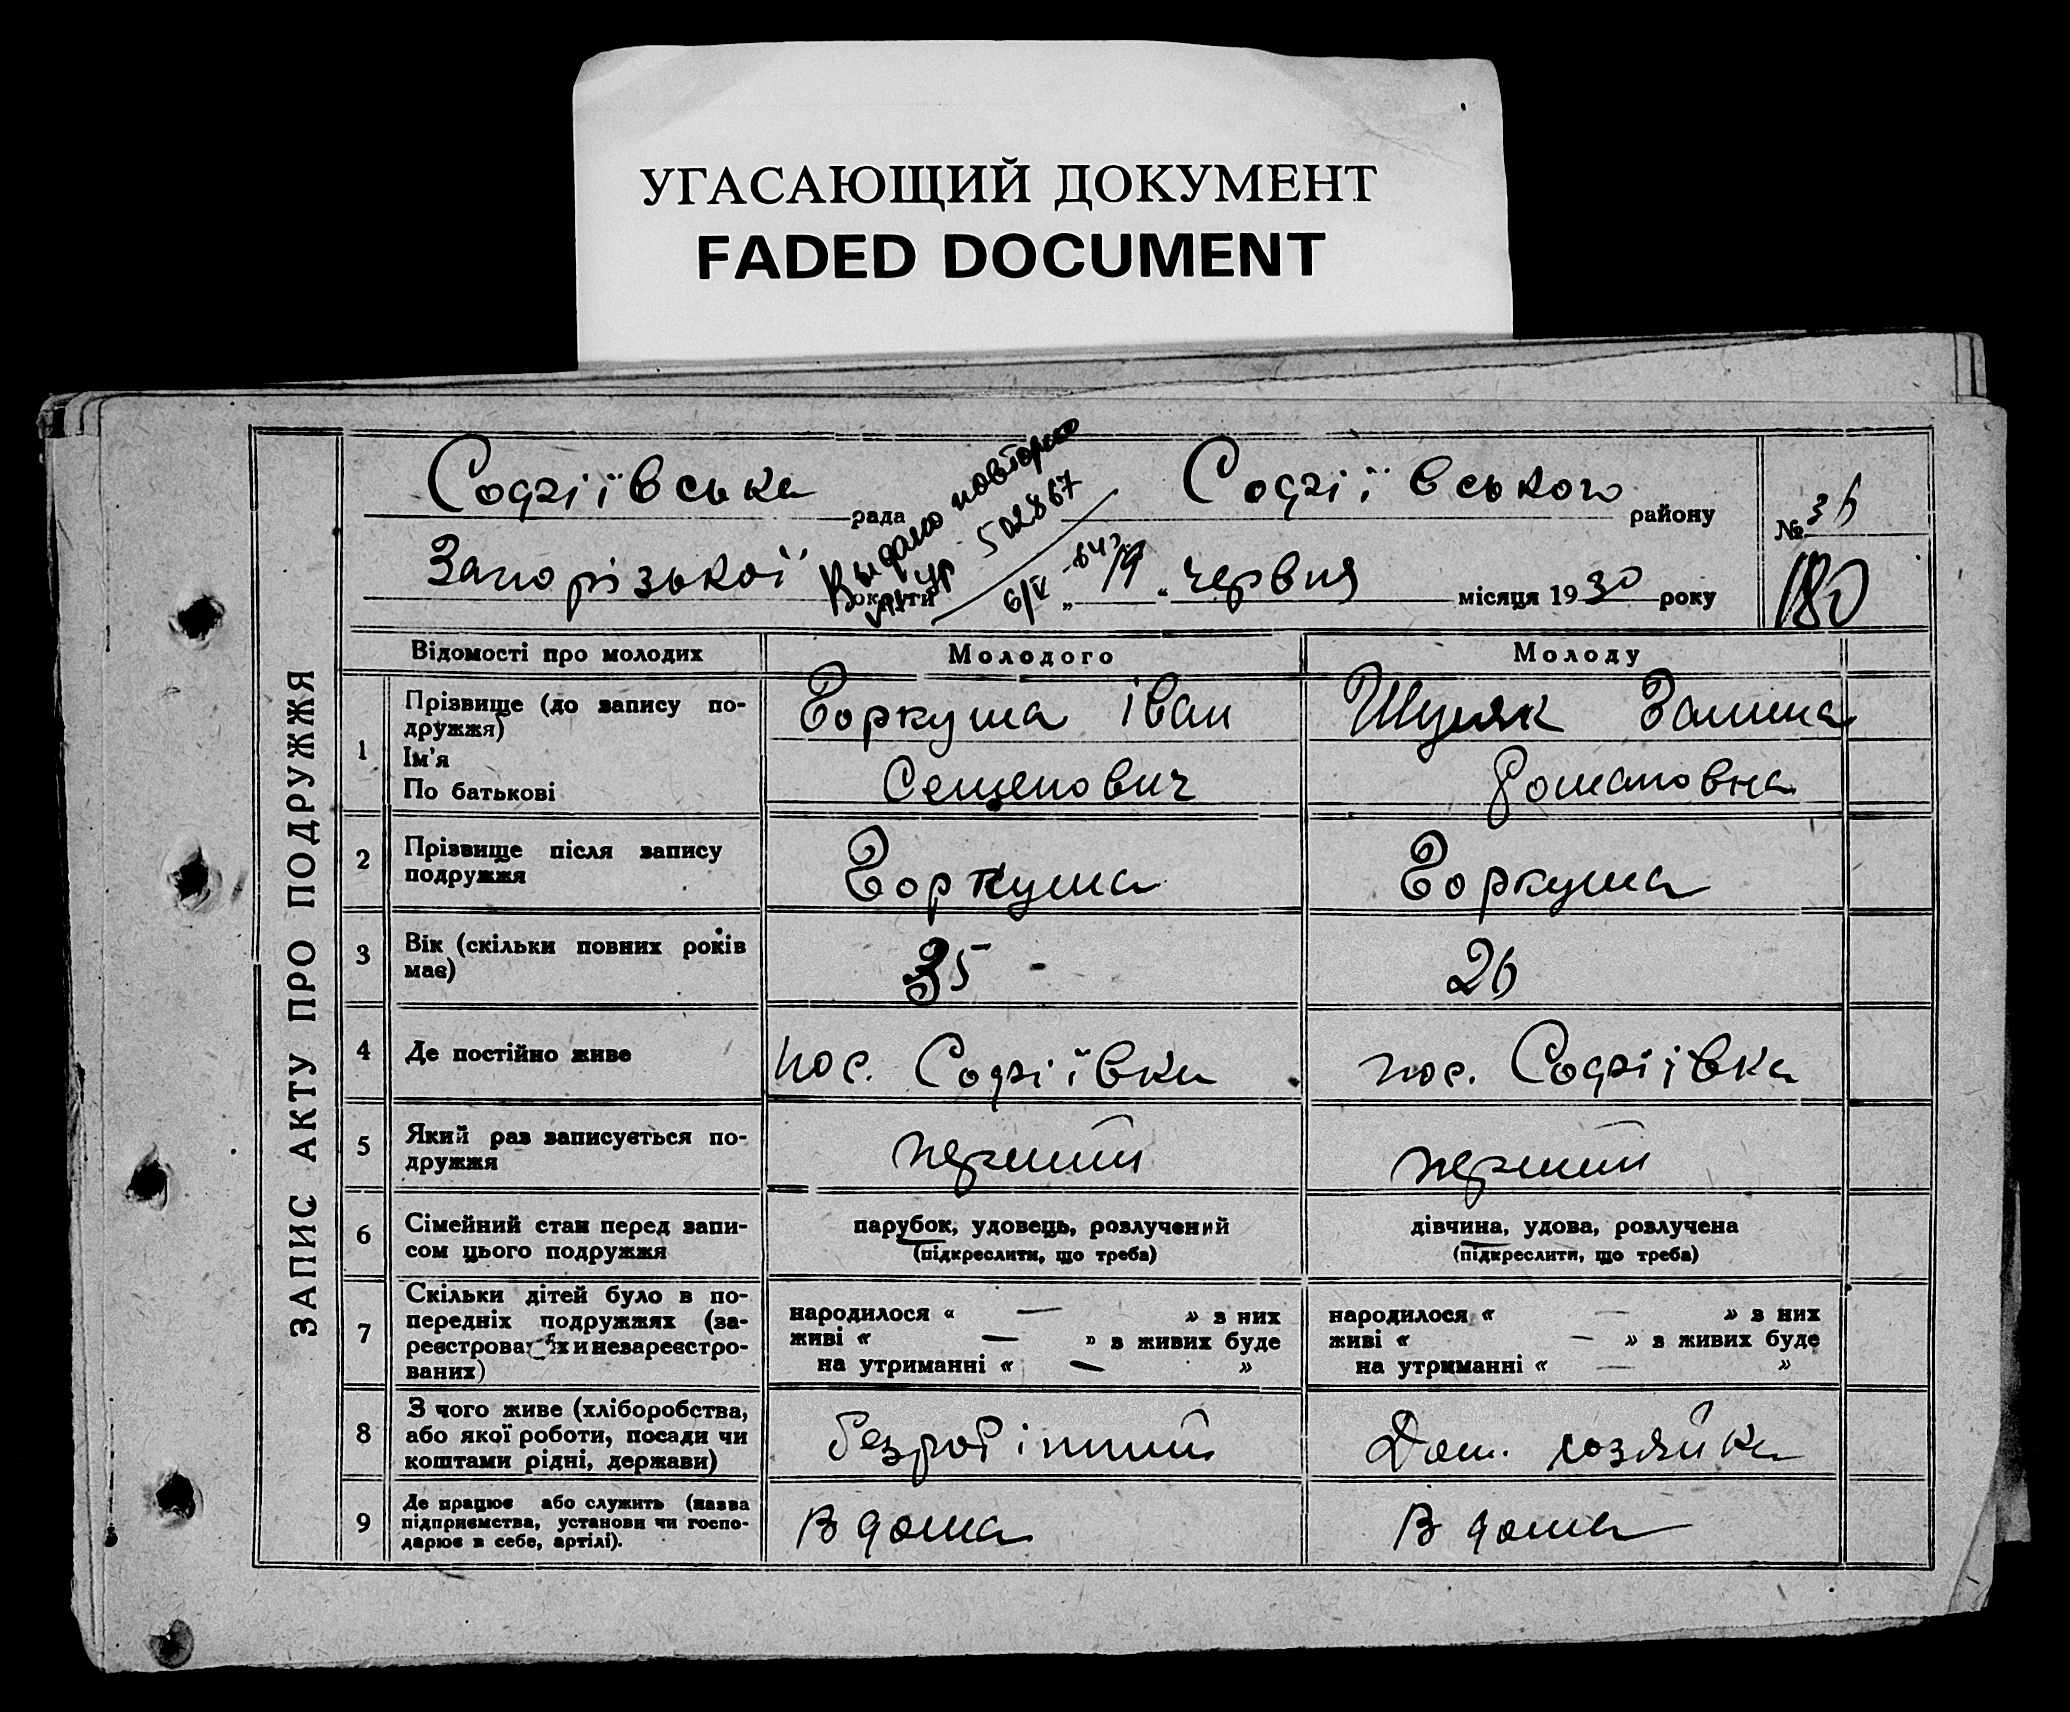 УГАСАЮЩИЙ ДОКУМЕНТ
FADED DOCUMENT
ЗАПИС АКТУ ПРО ПОДРУЖЖЯ
Софіївська рада Софіївського району
№ 36
Запорізької округи
Выдано повторно
502867
6/V
"19" червня місяця 1930 року
180
Відомості про молодих Молодого Молоду
1 Прізвище (до запису по-
дружжя)
Ім'я
По батькові
Горкуша Іван
Семенович
Шуляк Галина
Романовна
2 Прізвище після запису
подружжя
Горкуша Горкуша
3 Вік (скільки повних років
має)
35 26
4 Де постійно живе пос. Софіївка пос. Софіївка
5 Який раз записується по-
дружжя
перший перший
6 Сімейний стан перед запи-
сом цього подружжя
парубок, удовець, розлучений
(підкреслити, що треба)
дівчина, удова, розлучена
(підкреслити, що треба)
7 Скільки дітей було в по-
передніх подружжях (за-
реєстрованих и незареєстро-
ваних)
народилося « — » з них
живі « — » з живих буде
на утриманні « — »
народилося « — » з них
живі « — » з живих буде
на утриманні « — »
8 З чого живе (хліборобства,
або якої роботи, посади чи
коштами рідні, держави)
безробітний Дом. хозяйка
9 Де працює або служить (назва
підприємства, установи чи госпо-
дарює в себе, артілі).
В дома В дома